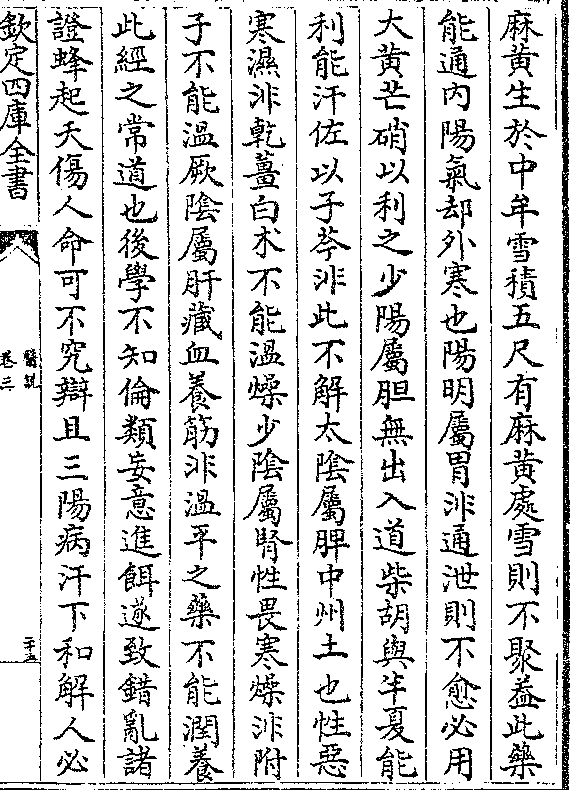 麻黃生於中牟雪積五尺有麻黃處雪則不聚葢此藥
能通內陽氣却外寒也陽明屬胃非通泄則不愈必用
大黃芒硝以利之少陽屬胆無出入道柴胡與半夏能
利能汗佐以子芩非此不解太陰屬脾中州土也性惡
寒濕非乾薑白术不能溫燥少陰屬腎性畏寒燥非附
子不能溫厥陰屬肝藏血養筋非溫平之藥不能潤養
此經之常道也後學不知倫類妄意進餌遂致錯亂諸
證蜂起夭傷人命可不究辯且三陽病汗下和解人必
欽定四庫全書
醫說
卷三
二十五